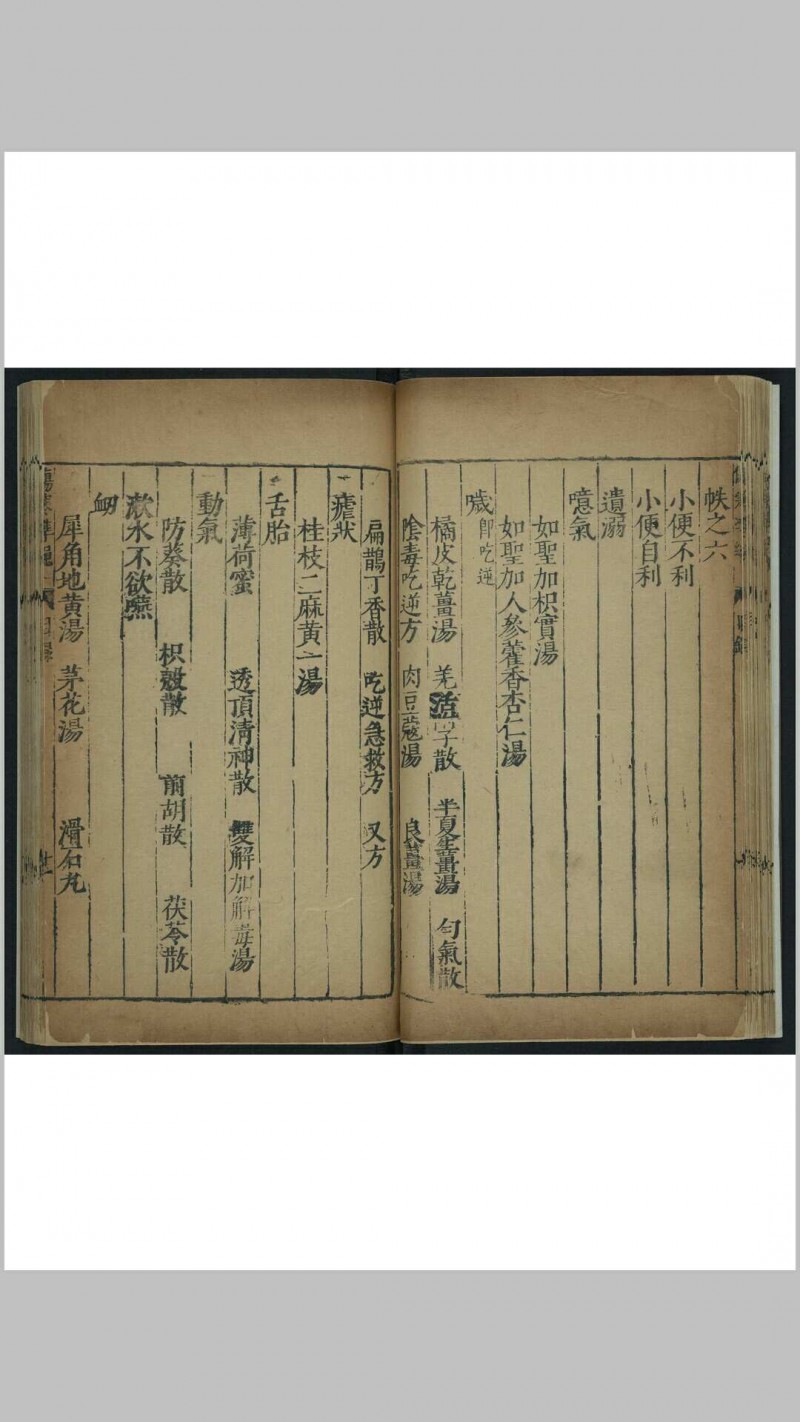 帙之六
小便不利
小便自利
遺溺
噫氣
如聖加枳實湯
如聖加人參藿香杏仁湯
噦 即吃逆
橘皮乾薑湯 羌活 子散 半夏生薑湯 匀氣散
陰毒吃逆方 肉豆蔻湯 良薑湯
扁鵲丁香散 吃逆急救方 又方
瘧狀
桂枝二麻黄一湯
舌胎
薄荷蜜 透頂清神散 雙解加解毒湯
動氣
防葵散 枳殼散 前胡散 茯苓散
漱水不欲嚥
衄
犀角地黄湯 茅花湯 滑石丸